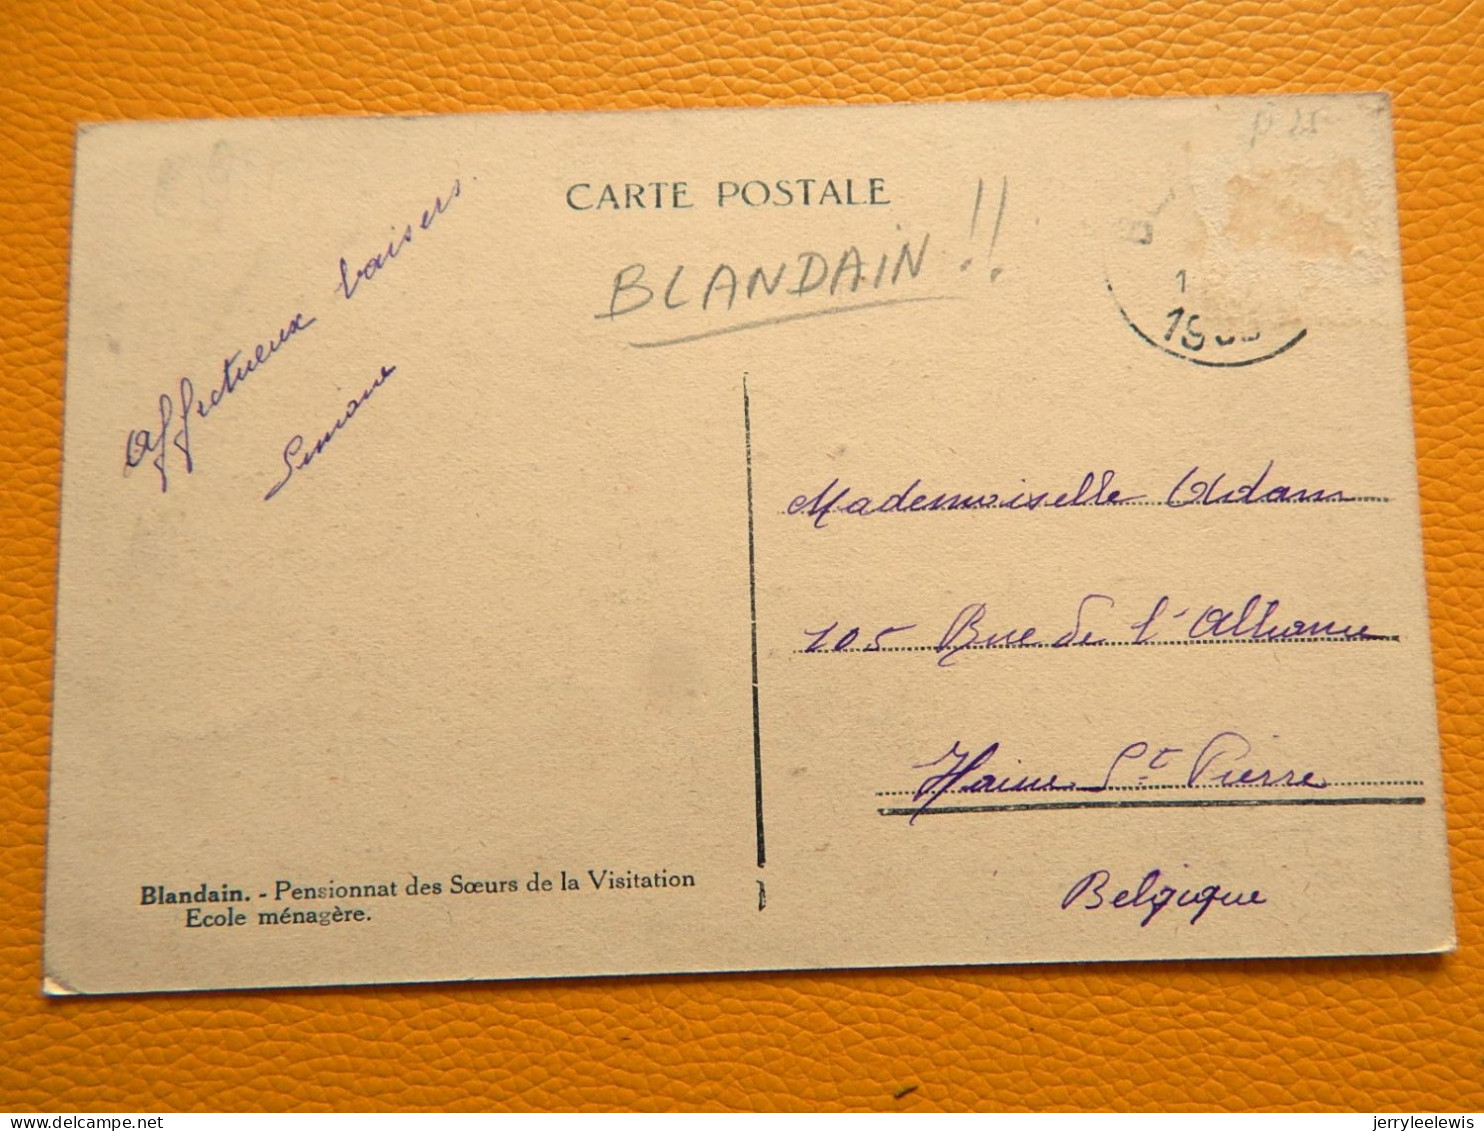 CARTE POSTALE
BLANDAIN !!
Affectueux baisers.
Simone
Mademoiselle Adam
105 Rue de l'Alliance
Haine St Pierre
Belgique
Blandain. - Pensionnat des Sœurs de la Visitation
Ecole ménagère.
jerryleelewis